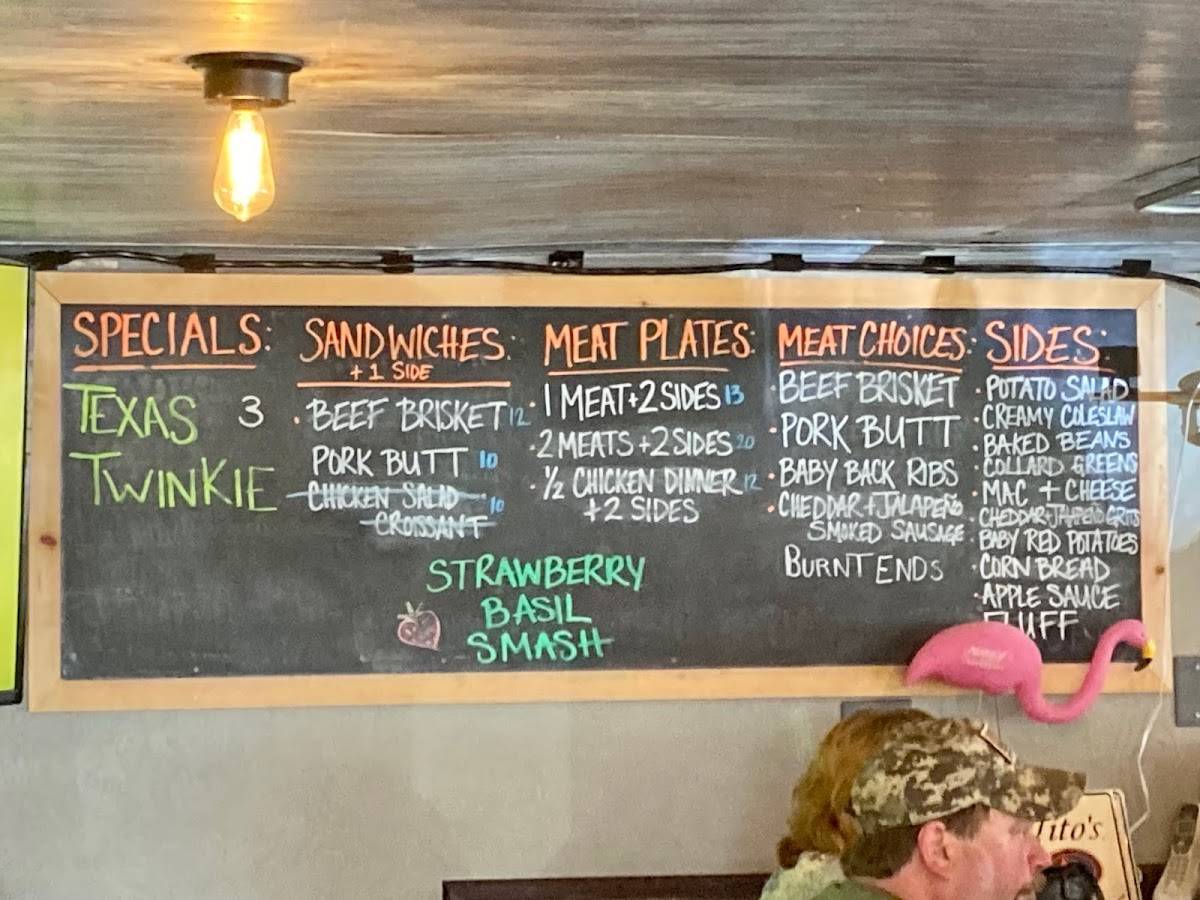 SPECIALS:
TEXAS 3
TWINKIE
SANDWICHES:
+ 1 SIDE
· BEEF BRISKET 12
PORK BUTT 10
CHICKEN SALAD 10
CROISSANT
MEAT PLATES:
· 1 MEAT + 2 SIDES 13
· 2 MEATS + 2 SIDES 20
· ½ CHICKEN DINNER 12
+ 2 SIDES
STRAWBERRY
BASIL
SMASH
MEAT CHOICES:
· BEEF BRISKET
· PORK BUTT
· BABY BACK RIBS
· CHEDDAR + JALAPEÑO
SMOKED SAUSAGE
BURNT ENDS
SIDES:
· POTATO SALAD
· CREAMY COLESLAW
· BAKED BEANS
· COLLARD GREENS
· MAC + CHEESE
· CHEDDAR + JALAPEÑO GRITS
BABY RED POTATOES
· CORN BREAD
· APPLE SAUCE
FLUFF
Tito's